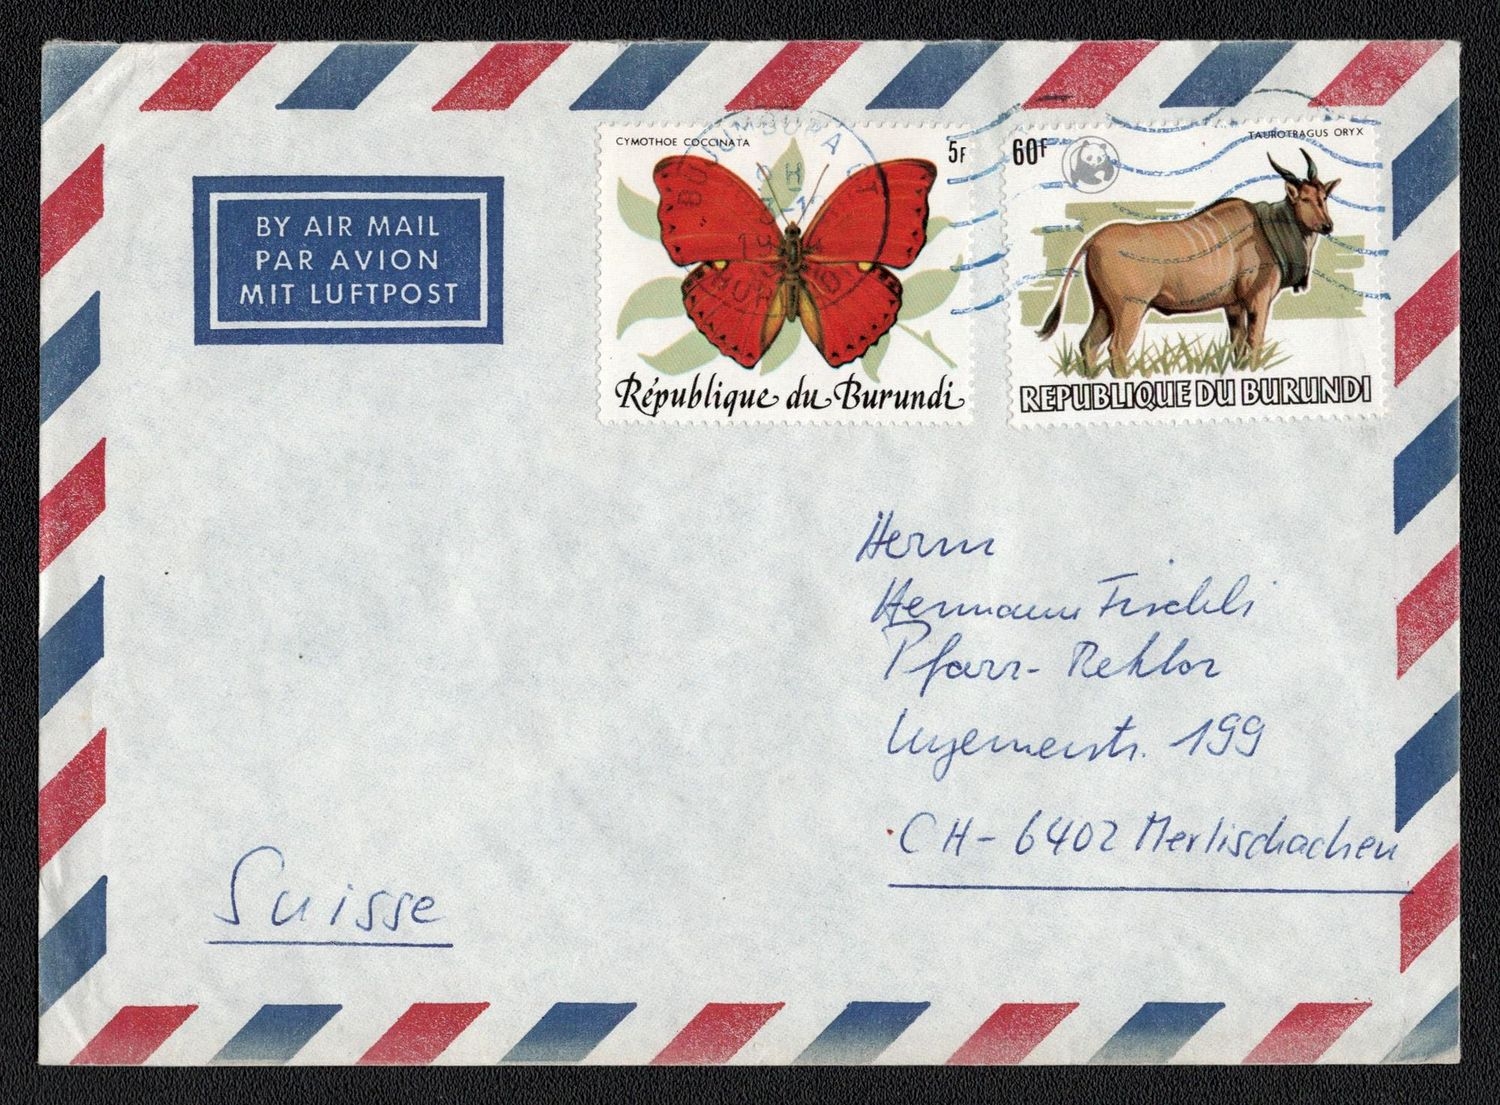 BY AIR MAIL
PAR AVION
MIT LUFTPOST
CYMOTHOE COCCINATA
5F
République du Burundi
60F
TAUROTRAGUS ORYX
REPUBLIQUE DU BURUNDI
BUJUMBURA
Herrn
Hermann Fischli
Pfarr-Rektor
199
CH-6402 Merlischachen
Suisse